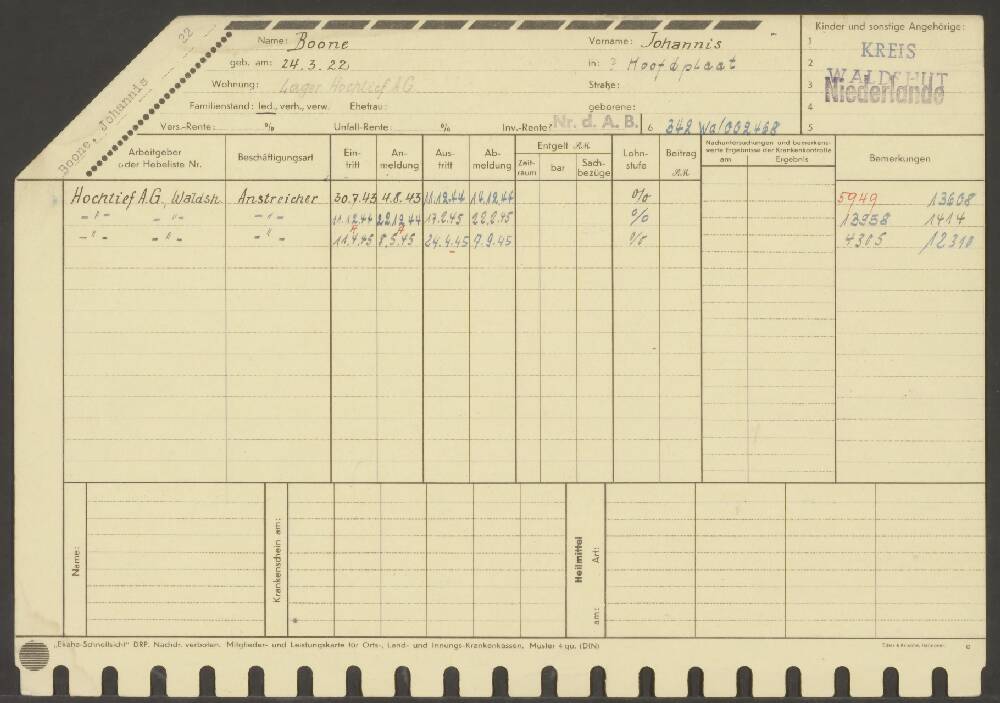 22
Boone, Johannis
Name: Boone
Vorname: Johannis
geb. am: 24.3.22
in: ? Hoofdplaat
Wohnung: Lager Hochtief AG.
Straße:
Familienstand: led., verh., verw. Ehefrau:
geborene:
Vers.-Rente: %
Unfall-Rente: %
Inv.-Rente:
Nr. d. A. B.
6 342 Wal 002468
Kinder und sonstige Angehörige:
1
2
3
4
5
KREIS
WALDSHUT
Niederlande
Arbeitgeber oder Hebeliste Nr.
Beschäftigungsart
Ein-tritt
An-meldung
Aus-tritt
Ab-meldung
Entgelt RM.
Zeit-raum
bar
Sach-bezüge
Lohn-stufe
Beitrag RM.
Nachuntersuchungen und bemerkens-
werte Ergebnisse der Krankenkontrolle
am Ergebnis
Bemerkungen
Hochtief A.G., Waldsh. Anstreicher 30.7.43 4.8.43 11.12.44 14.12.44 % 5949 13608
-"- -"- -"- 22.12.44 17.2.45 22.2.45 % 13958 1414
-"- -"- -"- 11.4.45 8.5.45 24.4.45 7.9.45 % 4305 12310
Name:
Krankenschein am:
Heilmittel
Art:
am:
„Ekaha-Schnellsicht" DRP. Nachdr. verboten. Mitglieder- und Leistungskarte für Orts-, Land- und Innungs-Krankenkassen, Muster 4 gu. (DIN)